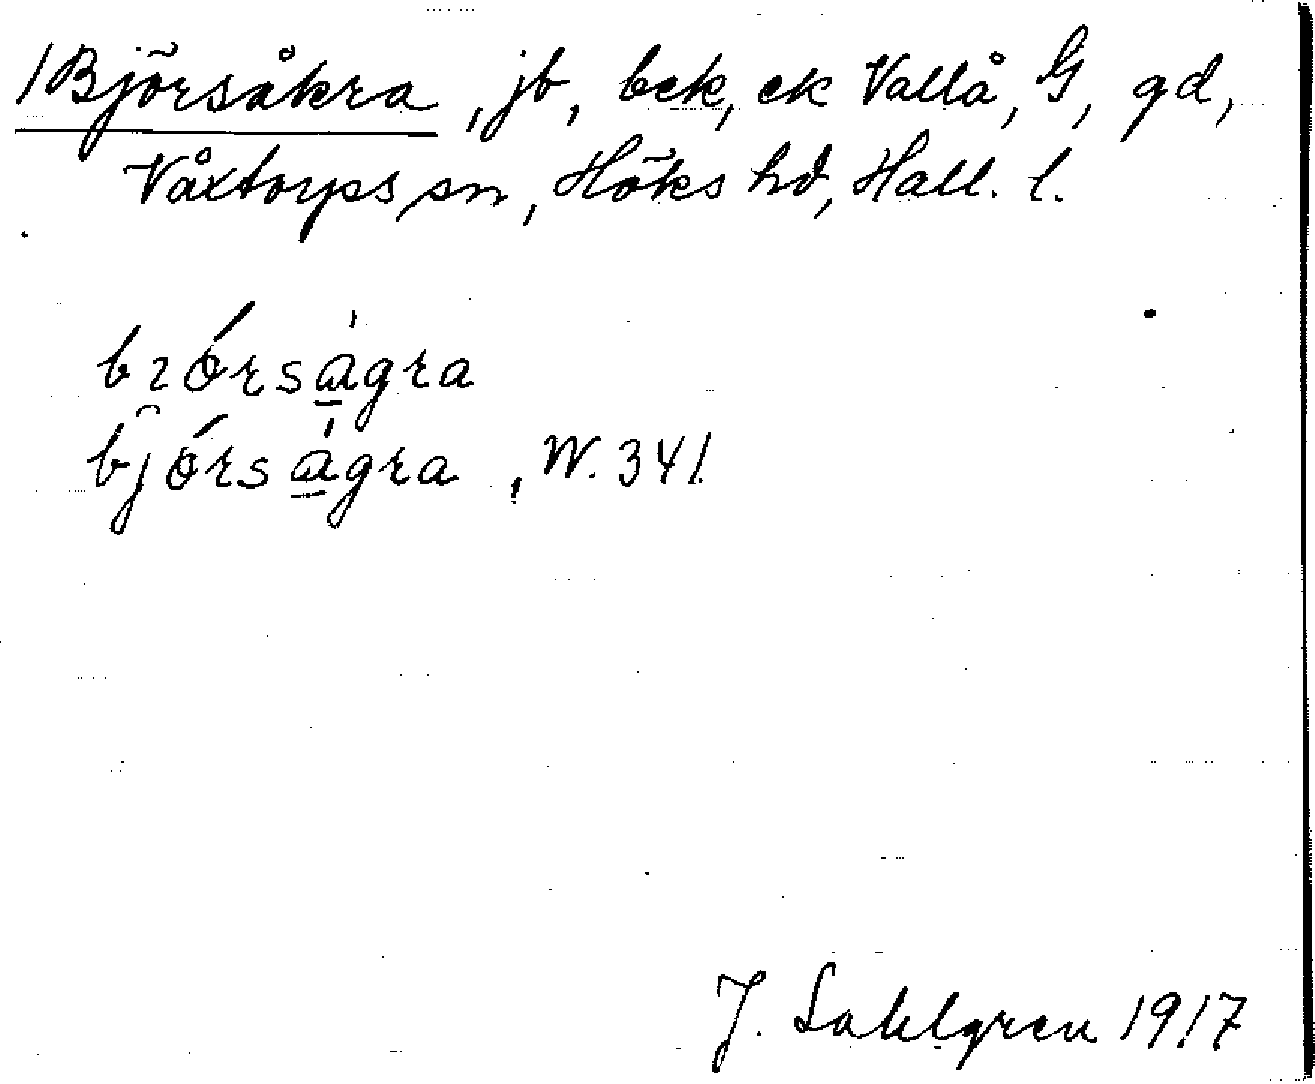 /Björsåkra, jb, bek, ek Vallå, G, gd,
Våxtorps sn, Höks hd, Hall. l.
bɿórsàgra
bjórsàgra, W. 341.
J. Sahlgren 1917